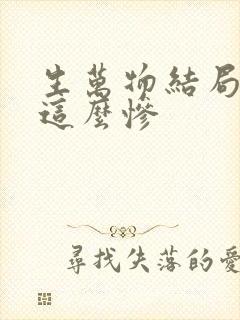 生萬物結局
這麼慘
尋找失落的愛